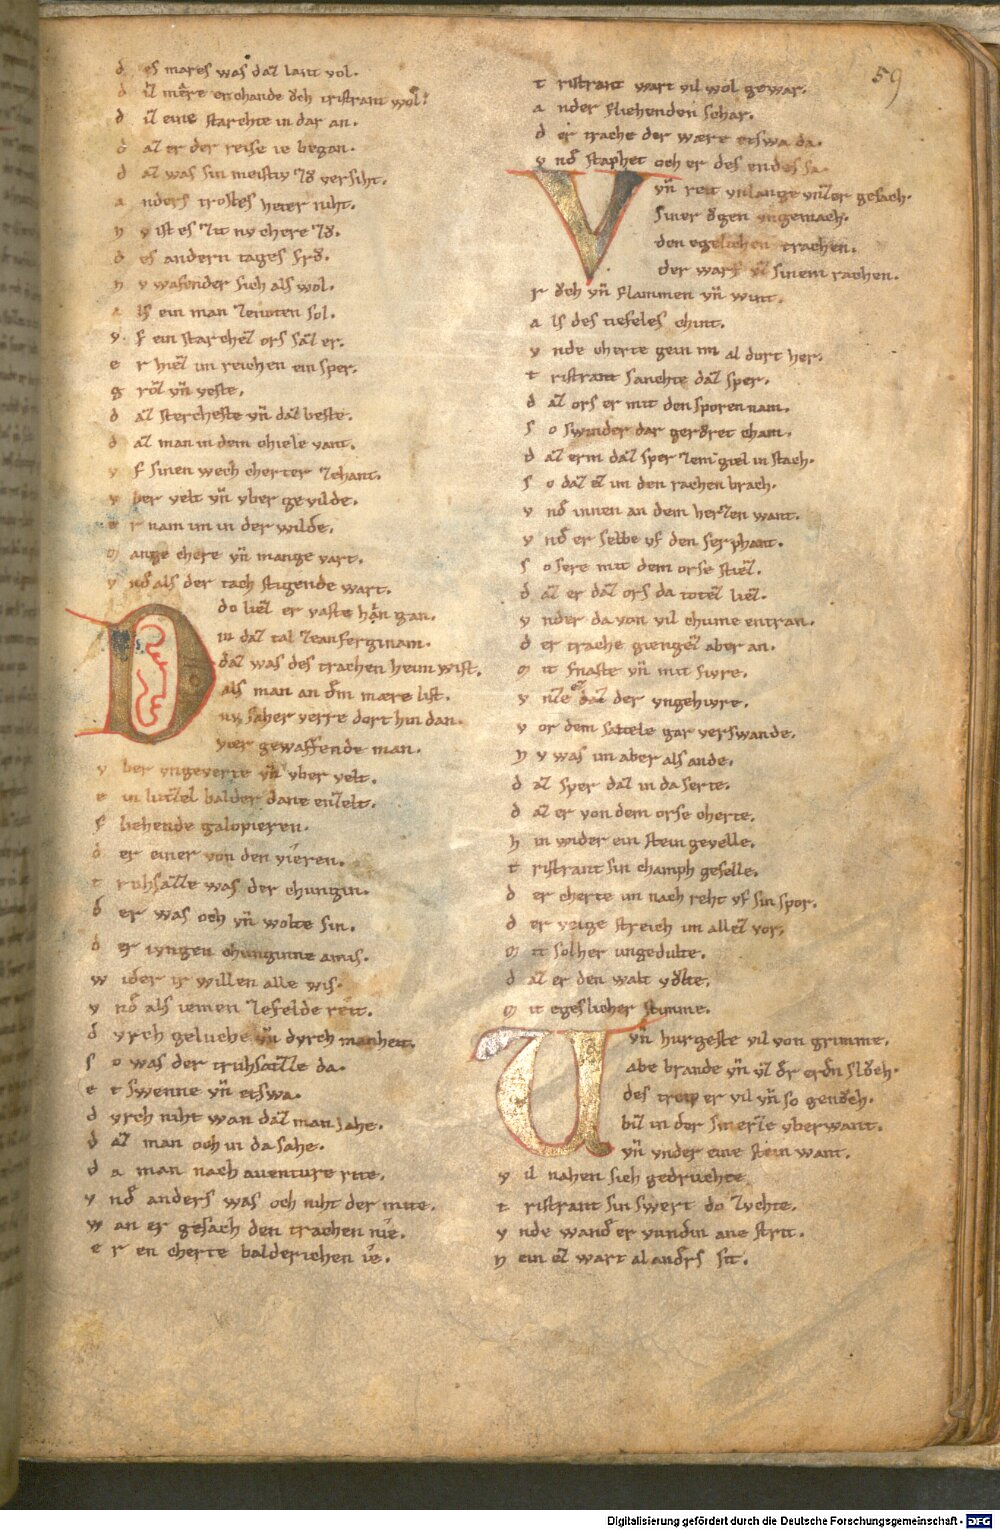 59
d es mares was daz lant vol.
d iz mere erchande ŏch tristrant wol.
d iz eine starchte in dar an.
d az er der reise ie began.
d az was sin meistiv zŏ versiht.
a nders trostes heter niht.
n v ist es zit nv chere zŏ.
d es andern tages frŏ.
n v wafender sich als wol.
a ls ein man zenoten sol.
v f ein starchez ors saz er.
e r hiez im reichen ein sper.
g roz vn̄ veste.
d az stercheste vn̄ daz beste.
d az man in dem chiele vant.
v f sinen wech cherter zehant.
v ber velt vn̄ vber gevilde.
e r nam im in der wilde.
m ange chere vn̄ mange vart.
v nd̄ als der tach stigende wart.
D do liez er vaste hân gan.
in daz tal zeanferginam.
daz was des trachen heim wist.
als man an dm̄ mære list.
nv saher verre dort hin dan.
vier gewaffende man.
v ber vngeverte vn̄ vber velt.
e in lutzel balder dane enzelt.
f liehende galopieren.
d er einer von den vieren.
t ruhsætze was der chungin.
d er was och vn̄ wolte sin.
d er ivngen chuniginne amis.
w ider ir willen alle wis.
v nd̄ als iemen zefelde reit.
d vrch geluche vn̄ dvrch manheit.
s o was der truhsætze da.
e t swenne vn̄ etswa.
d vrch niht wan daz man iahe.
d az man och in da sahe.
d a man nach aventure rite.
v nd̄ anders was och niht der mite.
w an er gesach den trachen nie.
e r en cherte balderichen ie.
t ristrant wart vil wol gewar.
a n der fliehenden schar.
d er trache der wære etswa da.
v nd̄ staphet och er des endes sa.
V vn̄ reit vnlange vnzer gesach.
siner ŏgen vngemach.
den egeslichen trachen.
der warf vz sinem rachen.
r ŏch vn̄ flammen vn̄ wint.
a ls des tiefeles chint.
v nde cherte gein im al dort her.
t ristrant sanchte daz sper.
d az ors er mit den sporen nam.
s o swinder dar gerŏret cham.
d az erm daz sper zem giel in stach.
s o daz ez im den rachen brach.
v nd̄ innen an dem herzen want.
v nd̄ er selbe vf den serphant.
s o sere mit dem orse stiez.
d az er daz ors da totez liez.
v nder da von vil chume entran.
d er trache giengez aber an.
m it fnaste vn̄ mit fivre.
v nze er daz der vngehivre.
v or dem satele gar verswande.
n v was im aber als ande.
d az sper daz in da serte.
d az er von dem orse cherte.
h in wider ein steingevelle.
t ristrant sin champh geselle.
d er cherte im nach reht vf sin spor.
d er veige streich im allez vor.
m it solher ungedulte.
d az er den walt vŏlte.
m it egeslicher stimme.
U vn̄ hurgeste vil von grimme.
abe brande vn̄ vz dr̄ erdn̄ slŏch.
des treip er vil vn̄ so genŏch.
biz in der smerze vberwant.
vn̄ vnder eine steinwant.
v il nahen sich gedruchte.
t ristrant sin swert do zvchte.
v nde wand̄ er vundin ane strit.
n ein ez wart al andrs̄ sit.
Digitalisierung gefördert durch die Deutsche Forschungsgemeinschaft - DFG